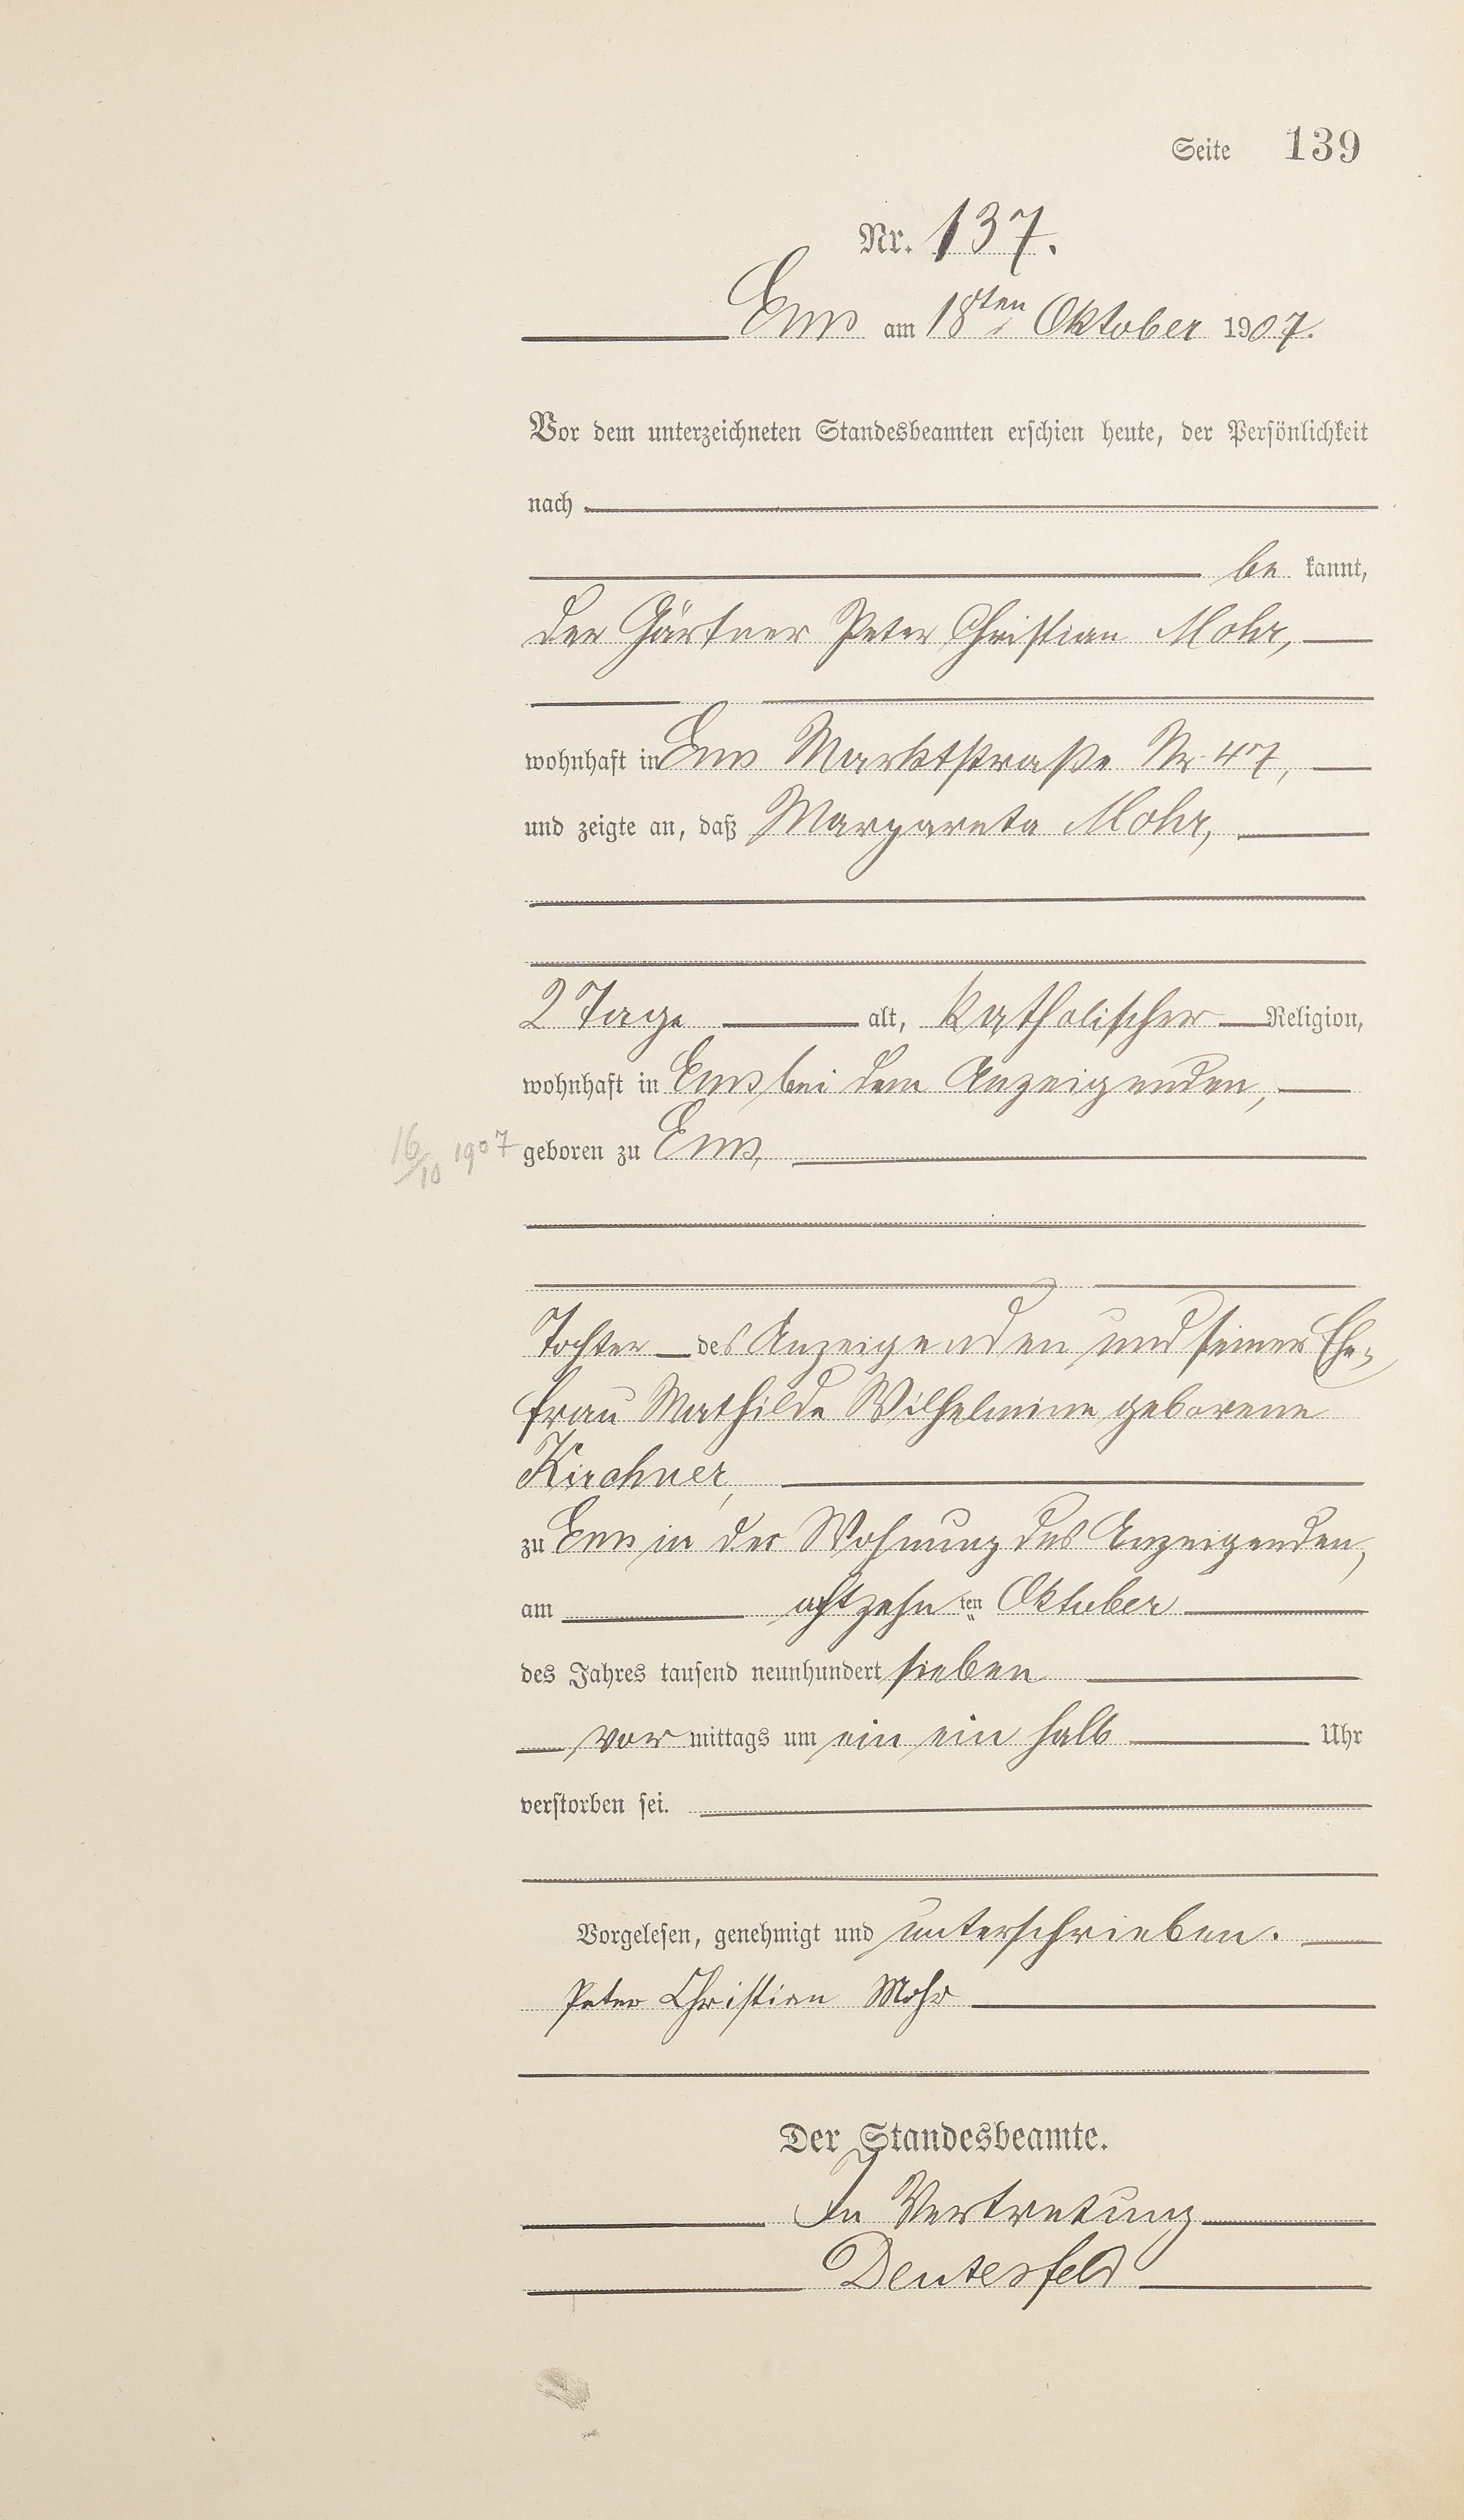 Seite 139
Nr. 137.
Ems am 18ten Oktober 1907.
Vor dem unterzeichneten Standesbeamten erschien heute, der Persönlichkeit
nach
be kannt,
der Gärtner Peter Christian Mohr,
wohnhaft in Ems Marktstraße Nr. 47,
und zeigte an, daß Margareta Mohr,
2 Tage alt, katholischer Religion,
wohnhaft in Ems bei dem Anzeigenden,
16/10 1907 geboren zu Ems,
Tochter des Anzeigenden und seiner Ehe-
frau Mathilde Wilhelmine geborene
Kirchner,
zu Ems in der Wohnung des Anzeigenden,
am achtzehn ten Oktober
des Jahres tausend neunhundert sieben
vor mittags um ein ein halb Uhr
verstorben sei.
Vorgelesen, genehmigt und unterschrieben.
Peter Christian Mohr
Der Standesbeamte.
In Vertretung
Deutesfeld